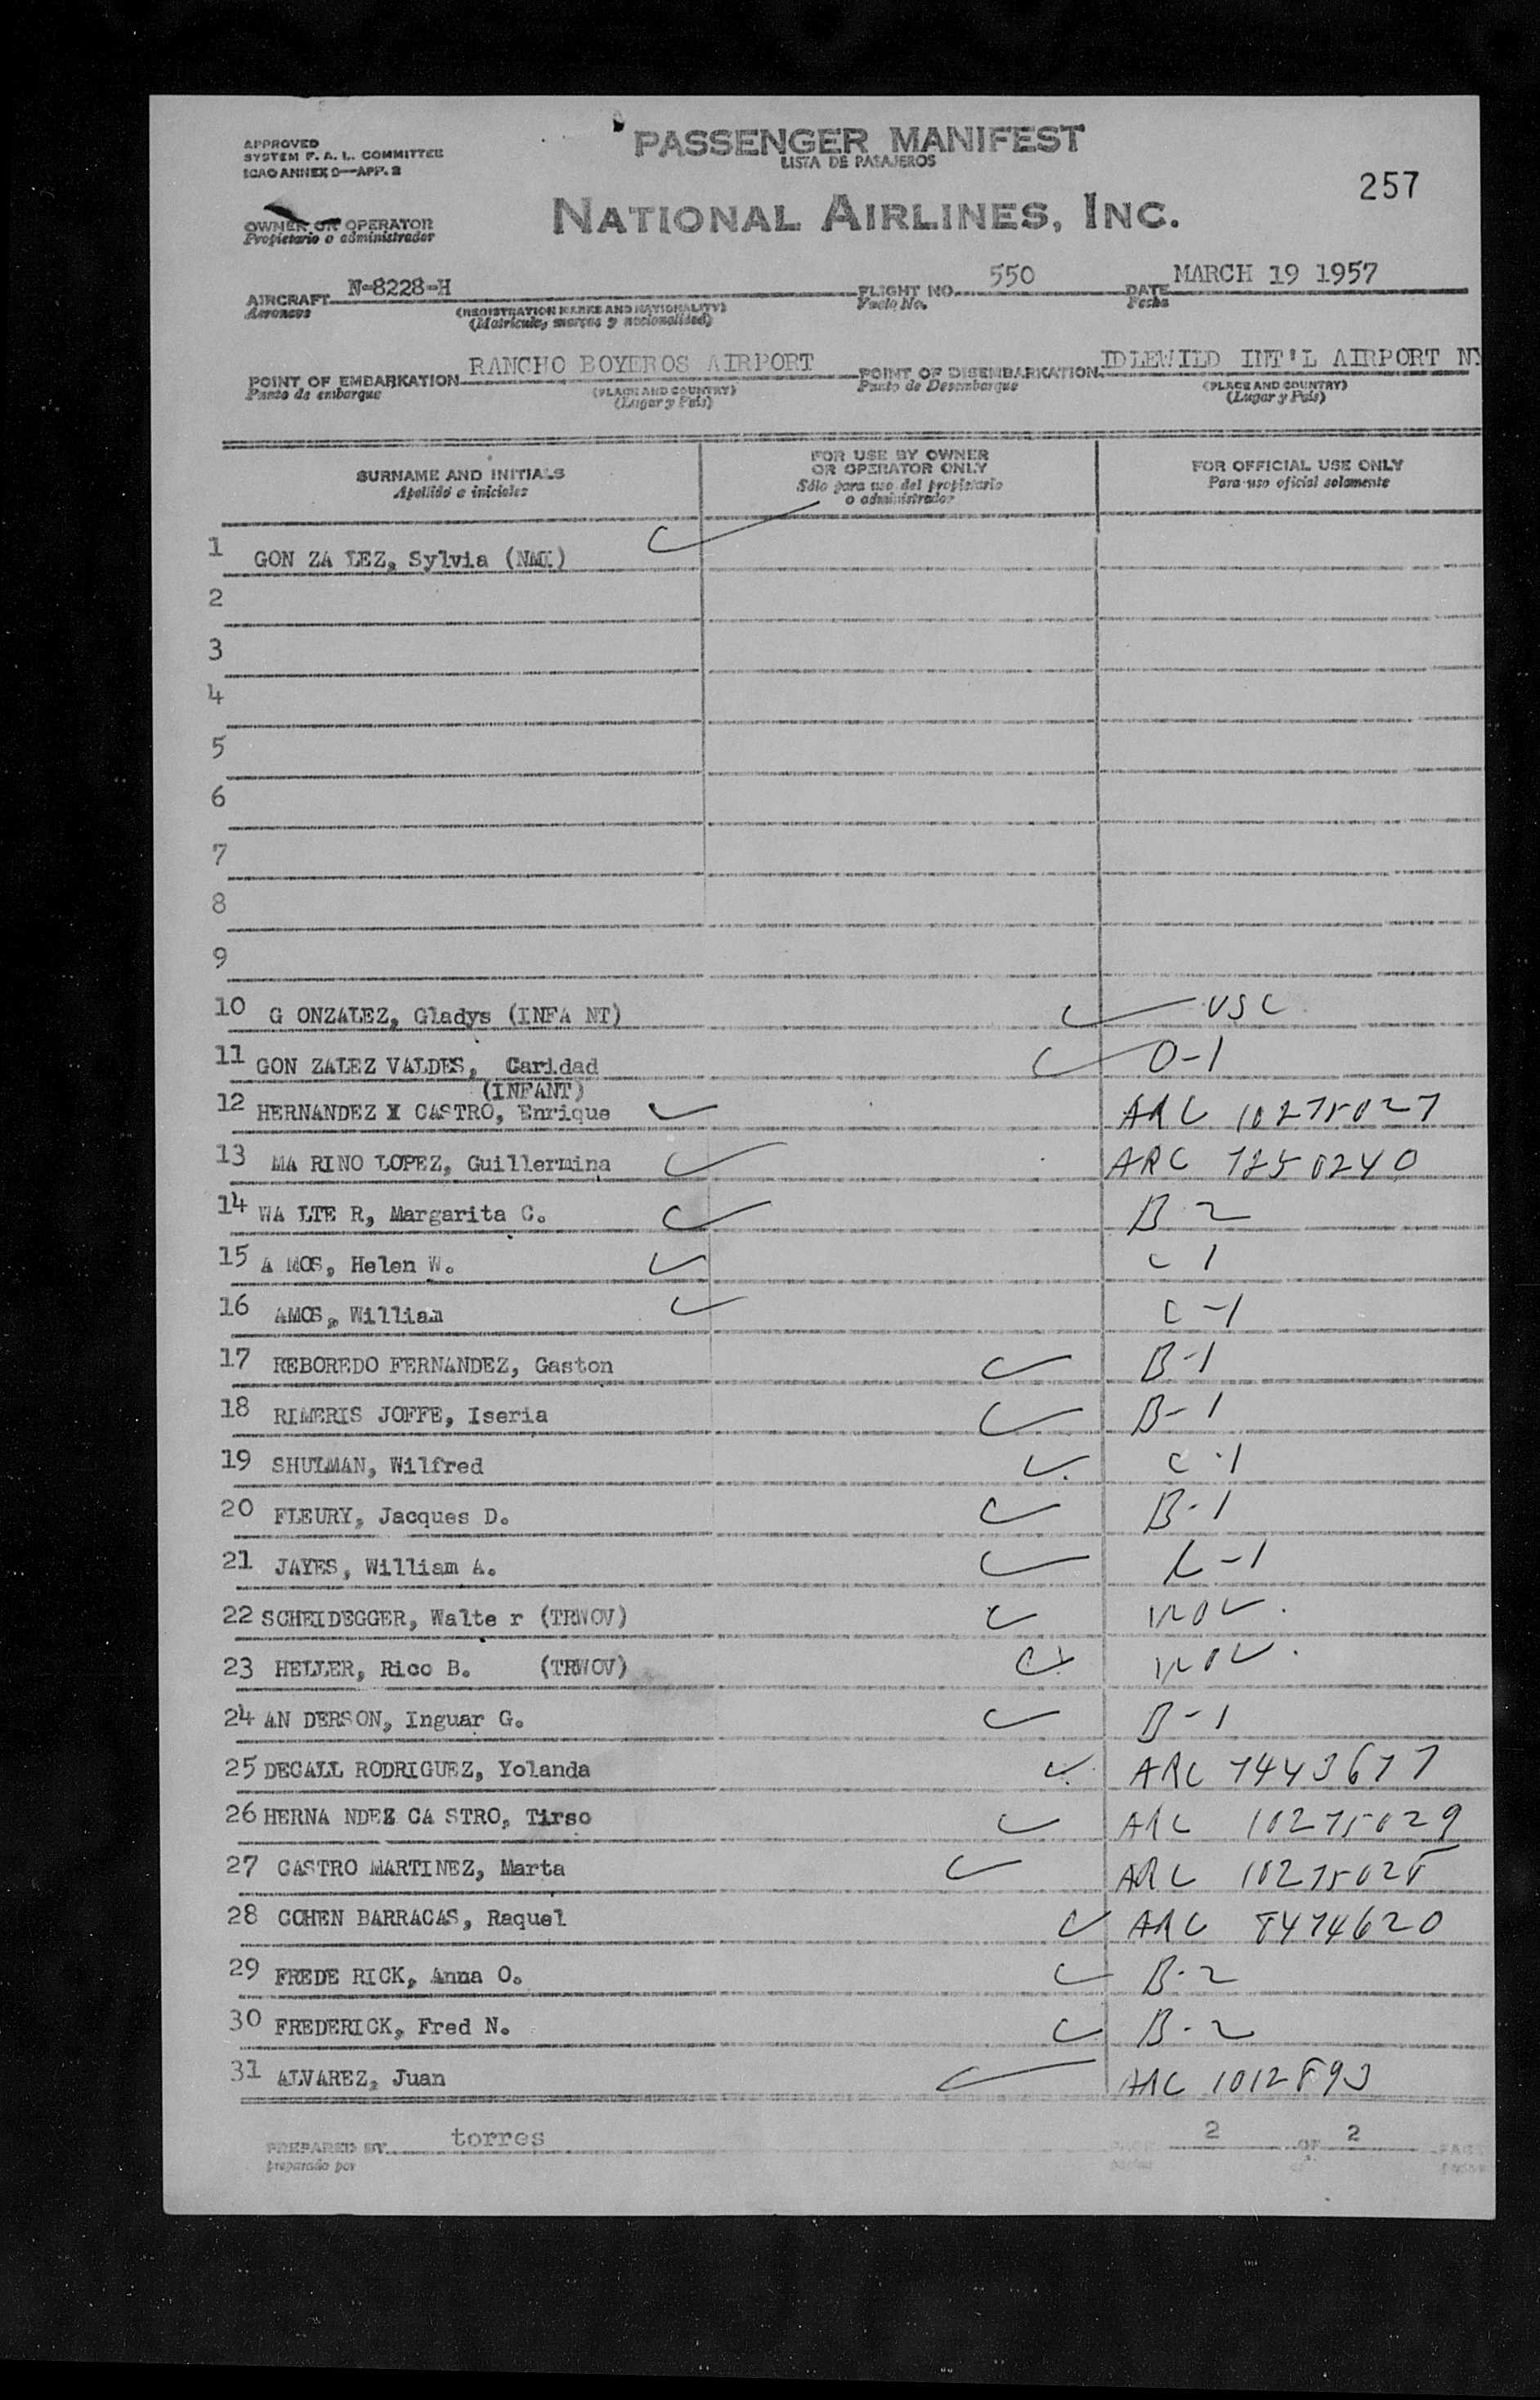 APPROVED
SYSTEM F. A. L. COMMITTEE
ICAO ANNEX 9—APP. 2
PASSENGER MANIFEST
LISTA DE PASAJEROS
257
OWNER OR OPERATOR
Propietario o administrador
NATIONAL AIRLINES, INC.
AIRCRAFT N-8228-H FLIGHT NO. 550 DATE MARCH 19 1957
Aeronave (REGISTRATION MARKS AND NATIONALITY) Vuelo No. Fecha
(Matricula, marcas y nacionalidad)
POINT OF EMBARKATION RANCHO BOYEROS AIRPORT POINT OF DISEMBARKATION IDLEWILD INT'L AIRPORT NY
Punto de embarque (PLACE AND COUNTRY) Punto de Desembarque (PLACE AND COUNTRY)
(Lugar y País) (Lugar y País)
SURNAME AND INITIALS
Apellido e iniciales
FOR USE BY OWNER
OR OPERATOR ONLY
Sólo para uso del propietario
o administrador
FOR OFFICIAL USE ONLY
Para uso oficial solamente
1 GON ZA LEZ, Sylvia (NMI)
2
3
4
5
6
7
8
9
10 G ONZALEZ, Gladys (INFA NT) USC
11 GON ZALEZ VALDES, Caridad O-1
(INFANT)
12 HERNANDEZ X CASTRO, Enrique ARC 10275027
13 MA RINO LOPEZ, Guillermina ARC 7250240
14 WA LTE R, Margarita C. B-2
15 A MOS, Helen W. C 1
16 AMOS, William C-1
17 REBOREDO FERNANDEZ, Gaston B-1
18 RIMERIS JOFFE, Iseria B-1
19 SHULMAN, Wilfred C-1
20 FLEURY, Jacques D. B-1
21 JAYES, William A. C-1
22 SCHEIDEGGER, Walte r (TRWOV) WOV.
23 HELLER, Rico B. (TRWOV) WOV.
24 AN DERSON, Inguar G. B-1
25 DECALL RODRIGUEZ, Yolanda ARC 7443677
26 HERNA NDEZ CA STRO, Tirso ARC 10275029
27 CASTRO MARTINEZ, Marta ARC 10275028
28 COHEN BARRACAS, Raquel ARC 8474620
29 FREDE RICK, Anna O. B-2
30 FREDERICK, Fred N. B-2
31 ALVAREZ, Juan ARC 1012893
PREPARED BY torres 2 OF 2
preparado por